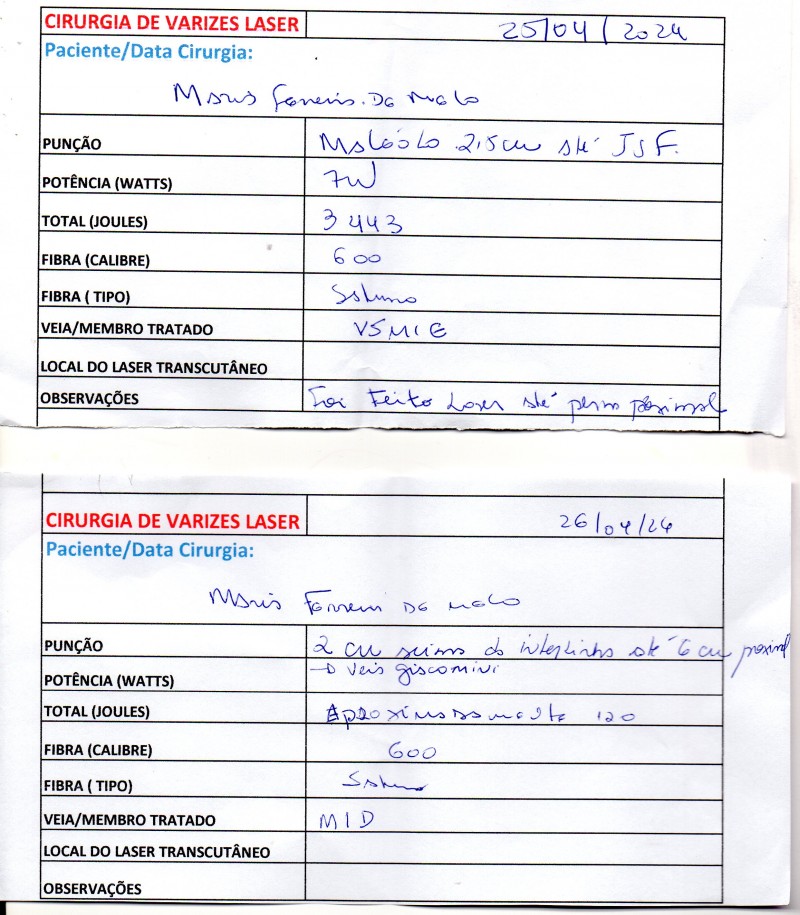 CIRURGIA DE VARIZES LASER 25/04/2024
Paciente/Data Cirurgia:
Maria Ferreira Da Melo
PUNÇÃO Maléolo 2,5cm até JSF.
POTÊNCIA (WATTS) 7W
TOTAL (JOULES) 3443
FIBRA (CALIBRE) 600
FIBRA ( TIPO)
VEIA/MEMBRO TRATADO VSMIE
LOCAL DO LASER TRANSCUTÂNEO
OBSERVAÇÕES Foi Feito Laser até perna proximal
CIRURGIA DE VARIZES LASER 26/04/24
Paciente/Data Cirurgia:
Maria Ferreira Da Melo
PUNÇÃO 2 cm acima da interlinha até 6 cm proximal
POTÊNCIA (WATTS) → veia giacomini
TOTAL (JOULES) Aproximadamente 120
FIBRA (CALIBRE) 600
FIBRA ( TIPO)
VEIA/MEMBRO TRATADO MID
LOCAL DO LASER TRANSCUTÂNEO
OBSERVAÇÕES